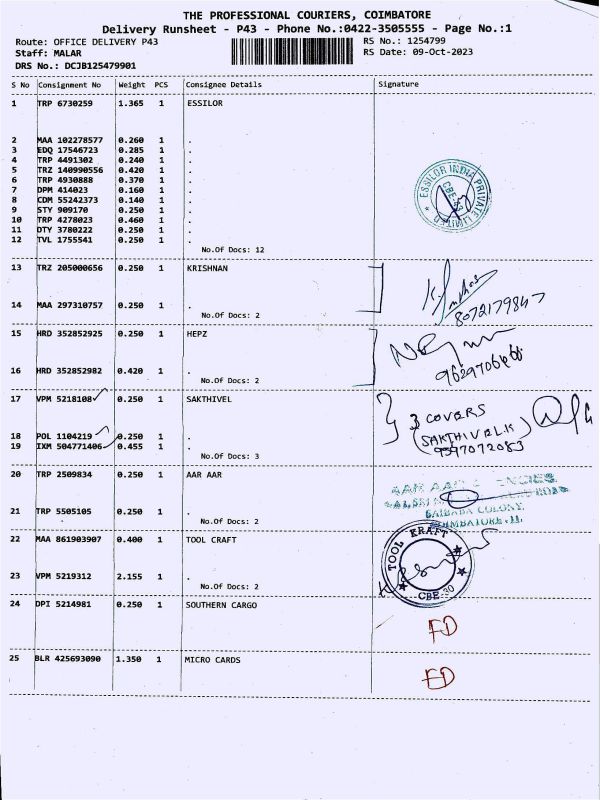 THE PROFESSIONAL COURIERS, COIMBATORE
Delivery Runsheet - P43 - Phone No.:0422-3505555 - Page No.:1
Route: OFFICE DELIVERY P43 RS No.: 1254799
Staff: MALAR RS Date: 09-Oct-2023
DRS No.: DCJB125479901
S No Consignment No Weight PCS Consignee Details Signature
1 TRP 6730259 1.365 1 ESSILOR
2 MAA 102278577 0.260 1 .
3 EDQ 17546723 0.285 1 .
4 TRP 4491302 0.240 1 .
5 TRZ 140990556 0.420 1 .
6 TRP 4930888 0.370 1 .
7 DPM 414023 0.160 1 .
8 CDM 55242373 0.140 1 .
9 STY 909170 0.250 1 .
10 TRP 4278023 0.460 1 .
11 DTY 3780222 0.250 1 .
12 TVL 1755541 0.250 1 .
ESSILOR INDIA PRIVATE LIMITED
No.Of Docs: 12
13 TRZ 205000656 0.250 1 KRISHNAN
14 MAA 297310757 0.250 1 .
8072179847
No.Of Docs: 2
15 HRD 352852925 0.250 1 HEPZ
16 HRD 352852982 0.420 1 .
No.Of Docs: 2
17 VPM 5218108 0.250 1 SAKTHIVEL
3 COVERS
18 POL 1104219 0.250 1 .
(SAKTHIVEL.K)
19 IXM 504771406 0.455 1 .
No.Of Docs: 3
20 TRP 2509834 0.250 1 AAR AAR
SAIBABA COLONY,
COIMBATORE-11.
21 TRP 5505105 0.250 1 .
No.Of Docs: 2
22 MAA 861903907 0.400 1 TOOL CRAFT
TOOL KRAFT
CBE-30
23 VPM 5219312 2.155 1 .
No.Of Docs: 2
24 DPI 5214981 0.250 1 SOUTHERN CARGO
FD
25 BLR 425693090 1.350 1 MICRO CARDS
FD